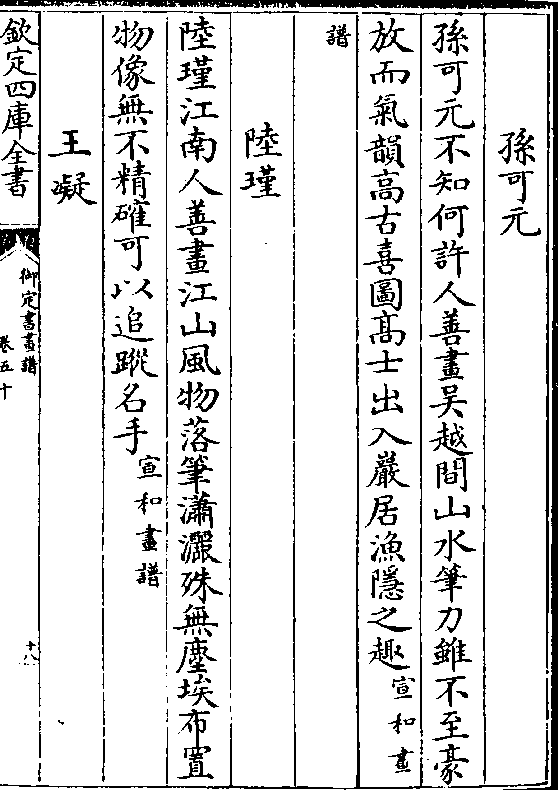 孫可元
孫可元不知何許人善畫吴越間山水筆力雖不至豪
放而氣韻高古喜圖髙士出入巖居漁隱之趣宣和畫
譜
陸瑾
陸瑾江南人善畫江山風物落筆瀟灑殊無塵埃布置
物像無不精確可以追蹤名手宣和畫譜
王凝
欽定四庫全書
御定書畫譜
卷五十
十八